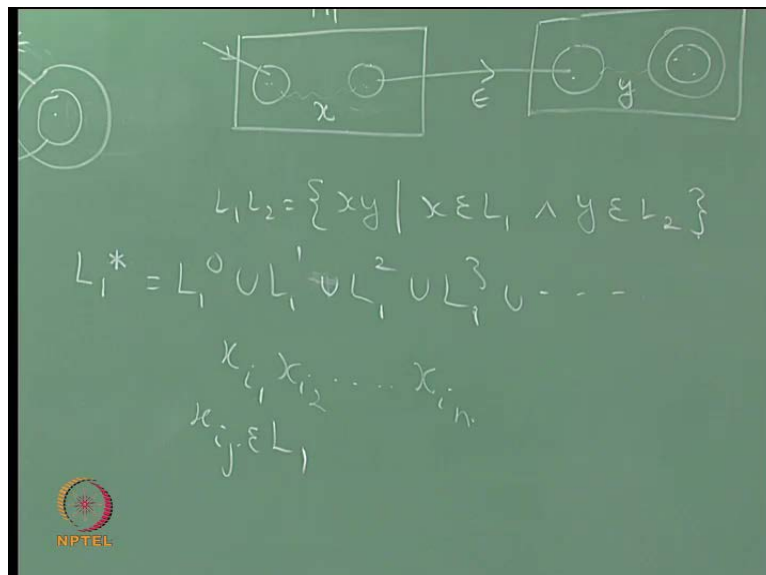 x ε y
L₁L₂ = { xy | x ε L₁ ∧ y ε L₂ }
L₁* = L₁⁰ ∪ L₁¹ ∪ L₁² ∪ L₁³ ∪ - - -
x_{i₁} x_{i₂} .... x_{iₙ}
x_{i_j} ε L₁
NPTEL